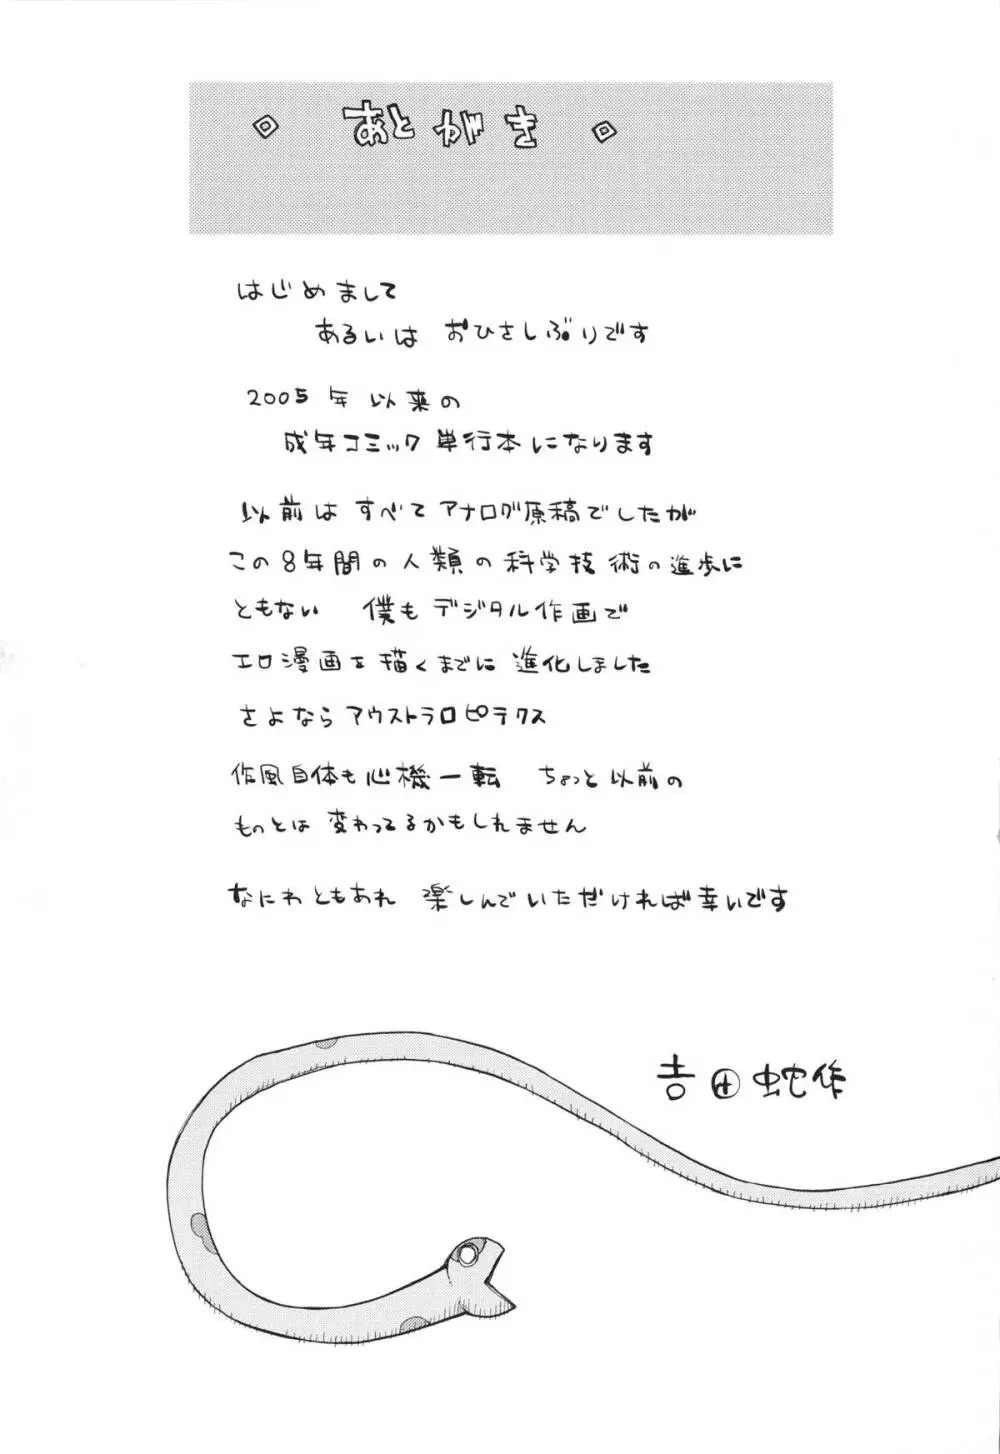 あとがき
はじめまして
あるいは おひさしぶりです
2005年以来の
成年コミック単行本になります
以前は すべて アナログ原稿でしたが
この8年間の人類の科学技術の進歩に
ともない 僕も デジタル作画で
エロ漫画を描くまでに 進化しました
さよなら アウストラロピテクス
作風自体も心機一転 ちょっと以前の
ものとは 変わってるかもしれません
なにわともあれ 楽しんでいただければ幸いです
吉田蛇作